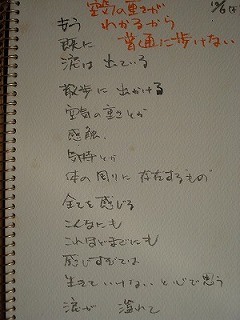 空気の重さが
わかるから
もう
既に 普通に歩けない
涙は出ている
散歩に出かける
空気の重さとか
感触、
気持とか
体の周りに存在するもの
全てを感じる
こんなにも
これほどまでにも
感じすぎては
生きていけないと心で思う
涙が 溢れて